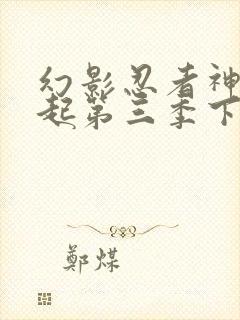 幻影忍者神
起第三季下
鄭煤